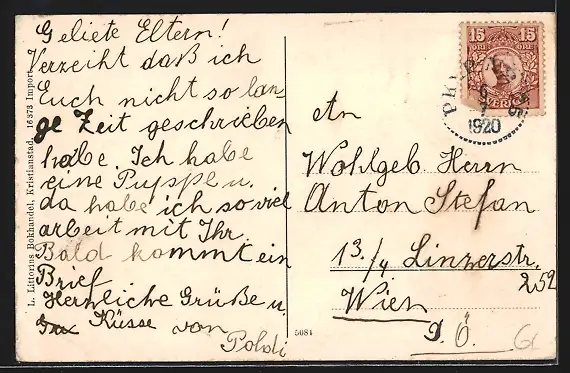 Geliete Eltern!
Verzeiht daß ich
Euch nicht so lan-
ge Zeit geschrieben
habe. Ich habe
eine Puppe u.
da habe ich so viel
arbeit mit Ihr.
Bald kommt ein
Brief
Herzliche Grüße u.
Küsse von
Poldi
L. Littorins Bokhandel, Kristianstad. 16373 Import.
5684
15 15
ÖRE
1920
An
Wohlgeb. Herrn
Anton Stefan
13./4 Linzerstr.
252
Wien
D. Ö.